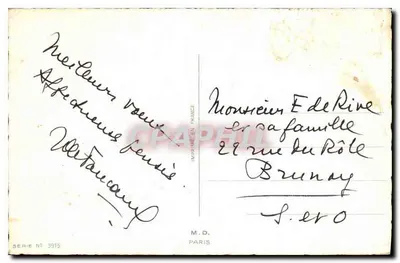 Meilleurs voeux
Affectueuse pensée.
Monsieur E de Rive
et sa famille
22 rue du Rôle
Brunoy
S. et O
IMPRIMÉ EN FRANCE
CPAPHIL
M. D.
PARIS
SERIE N°